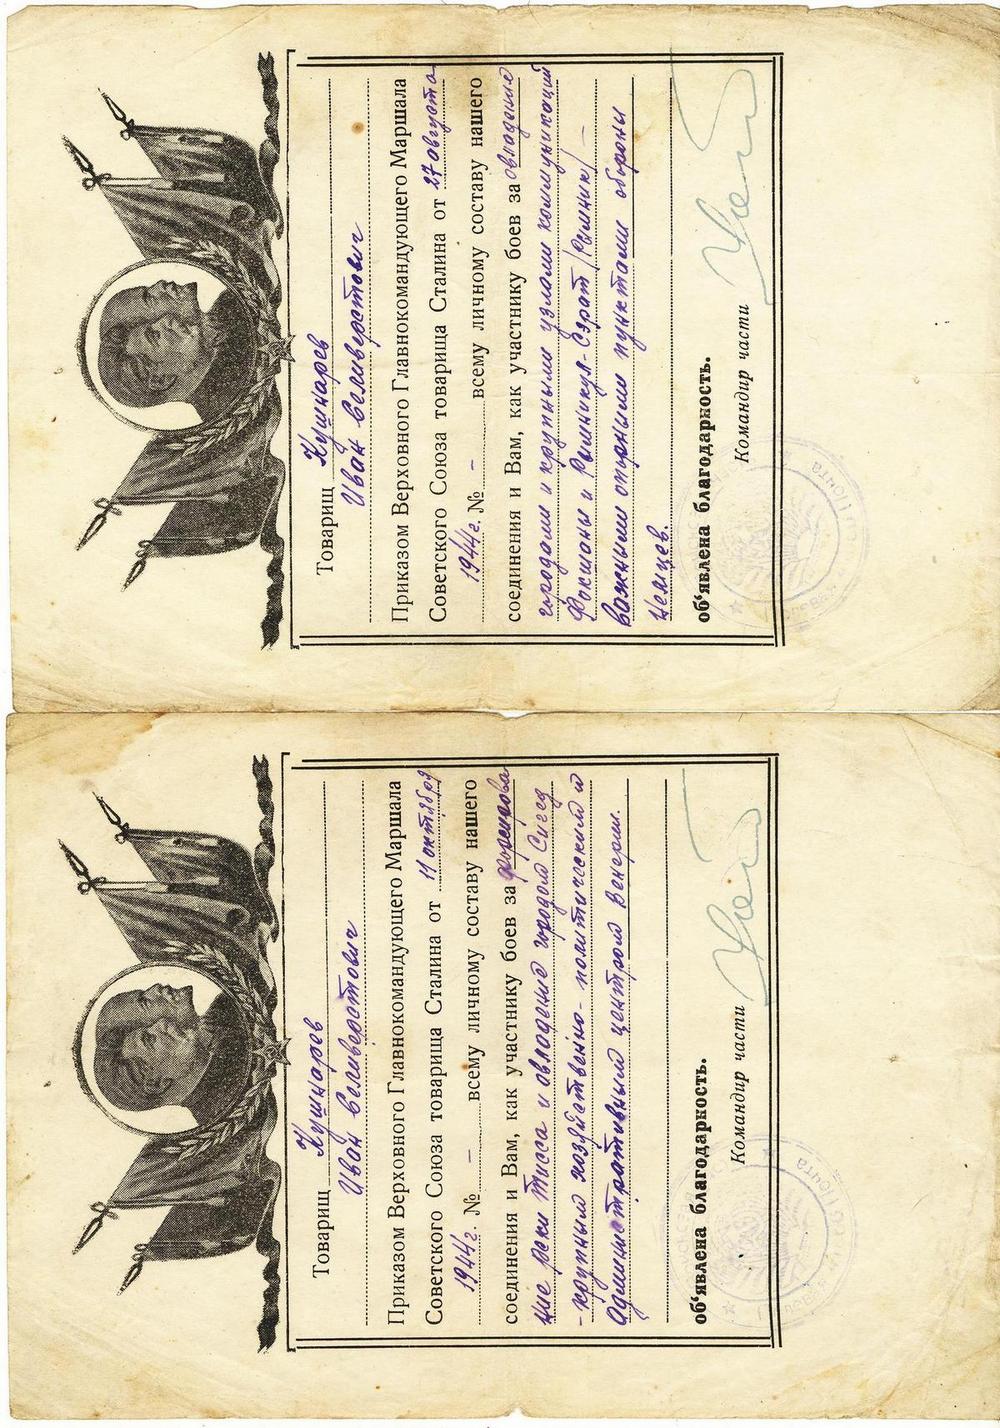 Товарищ Кушнарев
Иван Селиверстович
Приказом Верховного Главнокомандующего Маршала
Советского Союза товарища Сталина от 27 августа
1944г. № – всему личному составу нашего
соединения и Вам, как участнику боев за овладение
городами и крупными узлами коммуникаций
Фокшаны и Рымникул-Сэрат /Рымник/ –
важными опорными пунктами обороны
немцев.
об‘явлена благодарность.
Командир части
Товарищ Кушнарев
Иван Селиверстович
Приказом Верховного Главнокомандующего Маршала
Советского Союза товарища Сталина от 11 октября
1944г. № – всему личному составу нашего
соединения и Вам, как участнику боев за форсирова
ние реки Тисса и овладение городом Сегед
-крупным хозяйственно-политическим и
административным центром Венгрии.
об‘явлена благодарность.
Командир части